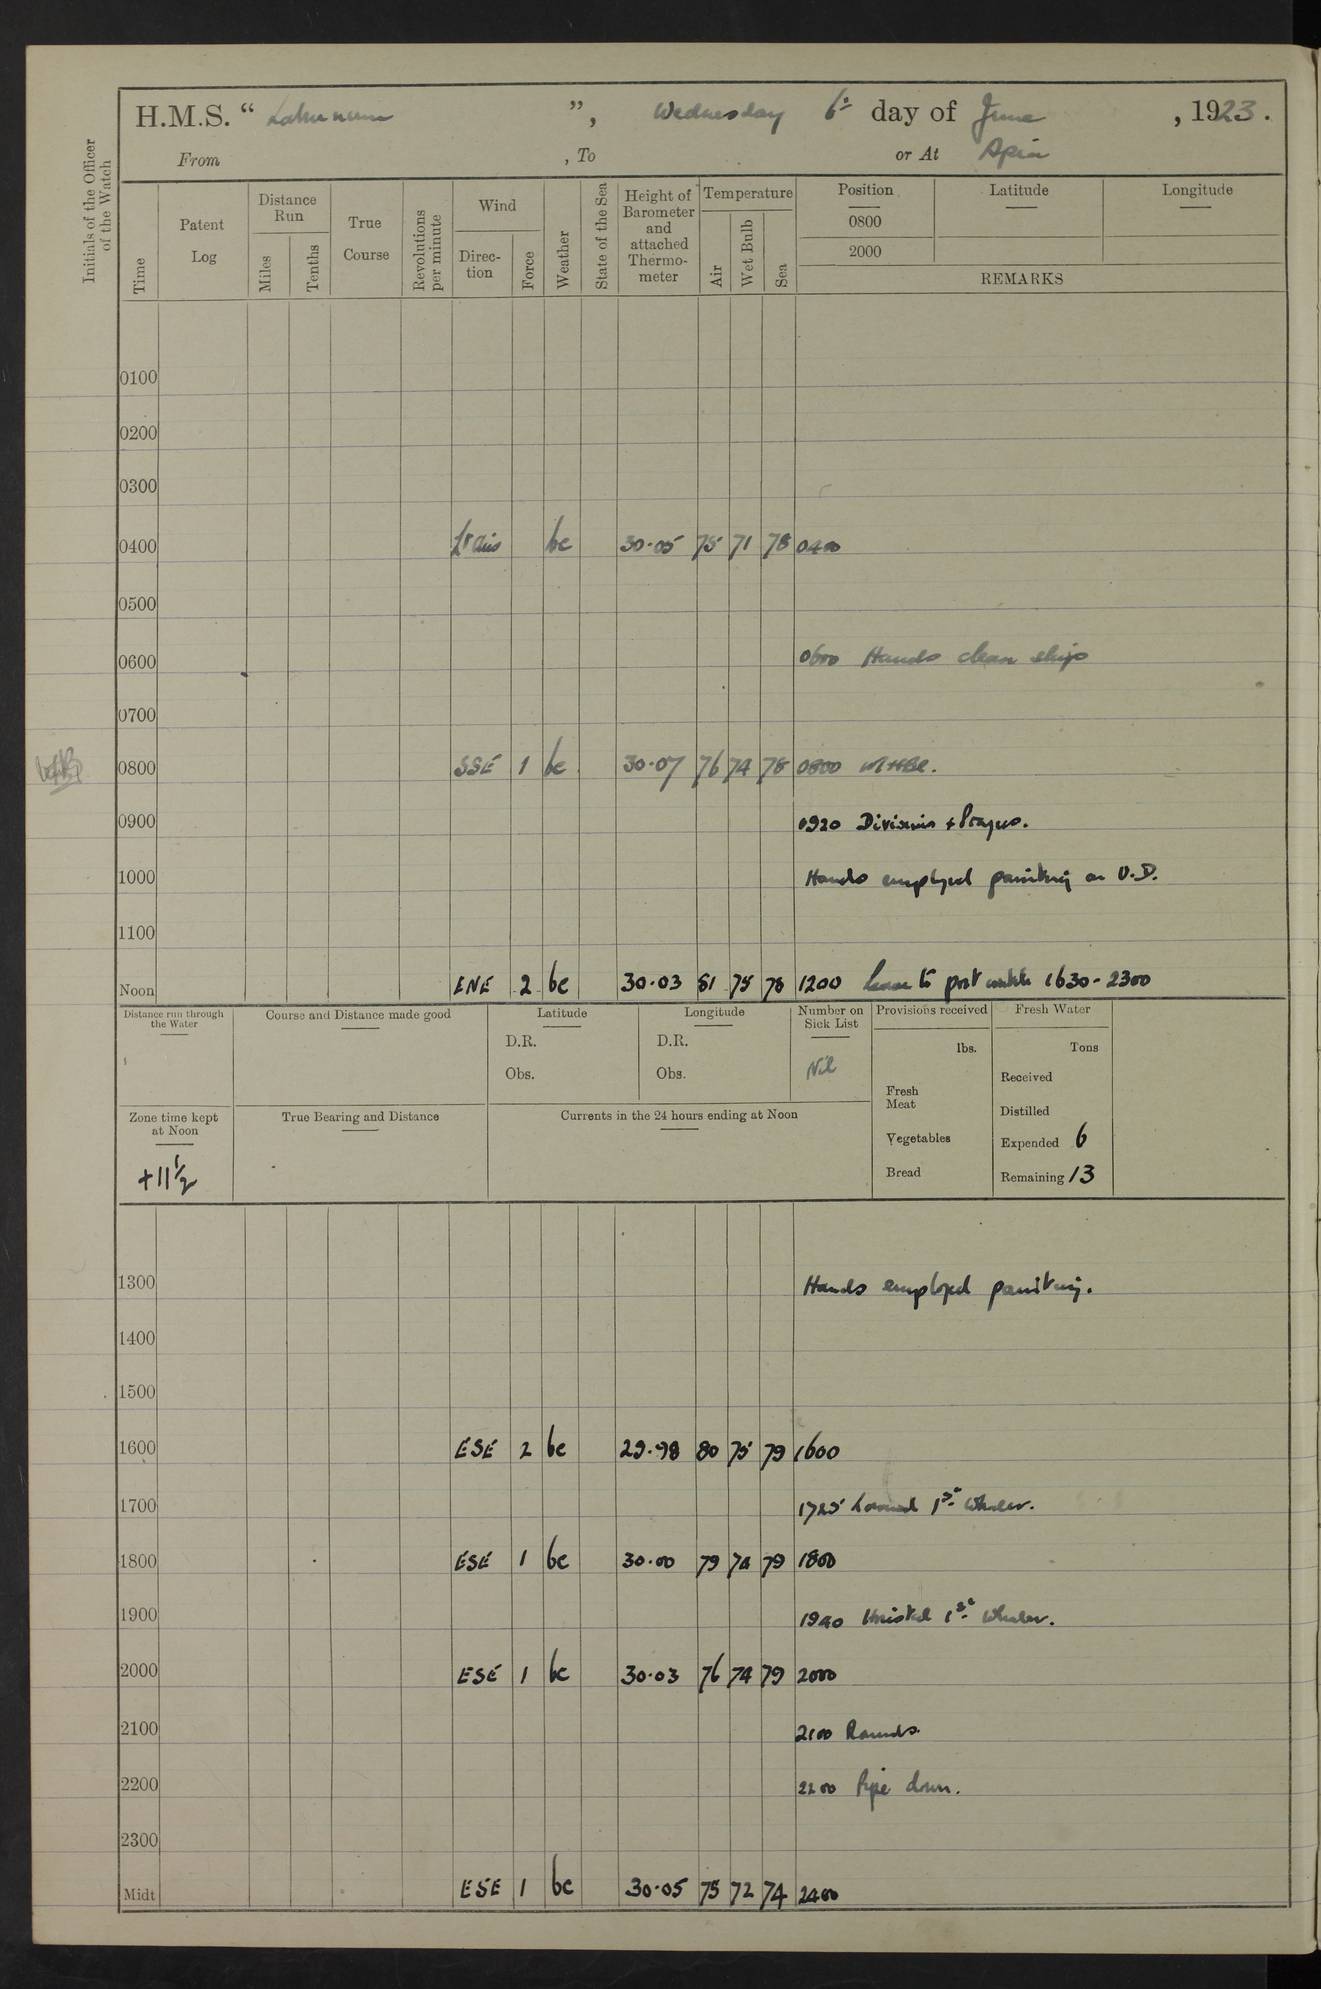 H.M.S. “ Laburnum ”, Wednesday 6th day of June, 1923.
From , To or At Apia
Initials of the Officer of the Watch
Time
Patent Log
Distance Run
Miles
Tenths
True Course
Revolutions per minute
Wind
Direc-tion
Force
Weather
State of the Sea
Height of Barometer and attached Thermo-meter
Temperature
Air
Wet Bulb
Sea
Position Latitude Longitude
0800
2000
REMARKS
0100
0200
0300
0400 Lt airs bc 30·05 75 71 78 0400
0500
0600 0600 Hands clean ship
0700
0800 SSE 1 bc 30·07 76 74 78 0800
0900 0920 Divisions & Prayers.
1000 Hands employed painting on U.D.
1100
Noon ENE 2 bc 30·03 81 75 78 1200 Leave to port watch 1630-2300
Distance run through the Water
Course and Distance made good
Latitude
D.R.
Obs.
Longitude
D.R.
Obs.
Number on Sick List
Nil
Provisions received
lbs.
Fresh Meat
Vegetables
Bread
Fresh Water
Tons
Received
Distilled
Expended 6
Remaining 13
Zone time kept at Noon
+11½
True Bearing and Distance
Currents in the 24 hours ending at Noon
1300 Hands employed painting.
1400
1500
1600 ESE 2 bc 29·98 80 75 79 1600
1700 1725 Lowered 1st Whaler.
1800 ESE 1 bc 30·00 79 74 79 1800
1900 1940 Hoisted 1st Whaler.
2000 ESE 1 bc 30·03 76 74 79 2000
2100 2100 Rounds.
2200 2200 Pipe down.
2300
Midt ESE 1 bc 30·05 75 72 74 2400